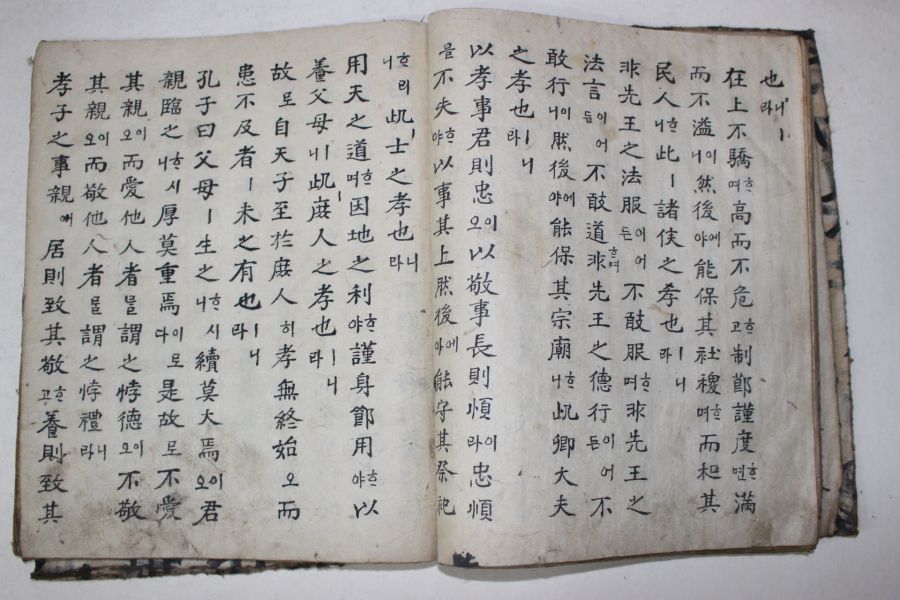 也ㅣ니라
在上不驕ᄒᆞ며高而不危ᄒᆞ고制節謹度ᄒᆞ면滿
而不溢이니然後에야能保其社稷ᄒᆞ며而和其
民人ᄒᆞ니此ㅣ諸侯之孝也ㅣ니라
非先王之法服이어든不敢服ᄒᆞ며非先王之
法言이어든不敢道ᄒᆞ며非先王之德行이어든不
敢行이니然後에야能保其宗廟ᄒᆞ니此卿大夫
之孝也ㅣ니라
以孝事君則忠이오以敬事長則順이라忠順
을不失ᄒᆞ야以事其上然後에야能守其祭祀
ᄒᆞ리니此ㅣ士之孝也ㅣ니라
用天之道ᄒᆞ며因地之利ᄒᆞ야謹身節用ᄒᆞ야以
養父母ㅣ니此ㅣ庶人之孝也ㅣ니라
故로自天子至於庶人히孝無終始오而
患不及者ㅣ未之有也ㅣ니라
孔子曰父母ㅣ生之ᄒᆞ시니續莫大焉이오君
親臨之ᄒᆞ시니厚莫重焉이로다是故로不愛
其親이오而愛他人者를謂之悖德이오不敬
其親이오而敬他人者를謂之悖禮니라
孝子之事親애居則致其敬ᄒᆞ고養則致其